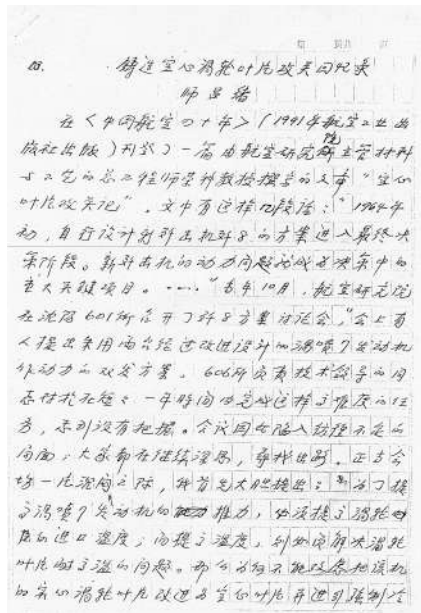 铸造空心涡轮叶片攻关回忆录
师昌绪
在《中国航空四十年》(1991年航空工业出
版社出版)刊登了一篇由航空研究院主管材料
与工艺的总工程师荣科教授撰写的文章“空心
叶片攻关记”。文中有这样几段话:“1964年
初,自行设计新歼击机歼8的方案进入最终决
策阶段。新歼击机的动力问题就成为决策中的
重大关键项目。……”当年10月,航空研究院
在沈阳601所召开了歼8方案讨论会,“会上有
人提出采用两台经过改进设计的涡喷7发动机
作动力的双发方案。606所负责技术领导的同
志性在短 一年时间内完成这样高难度的任
务,感到没有把握。会议因而陷入 不定的
局面;大家都在继续 ,寻找出路。正当会
场一片沉闷之际,我首先大胆提出:为了提
高涡喷7发动机的推力,必须提高涡轮
的进口温度;而提高温度,则必须解决涡轮
叶片耐高温的问题。那么为何不能改 把该机
的实心涡轮叶片改进为空心叶片并进行强制冷